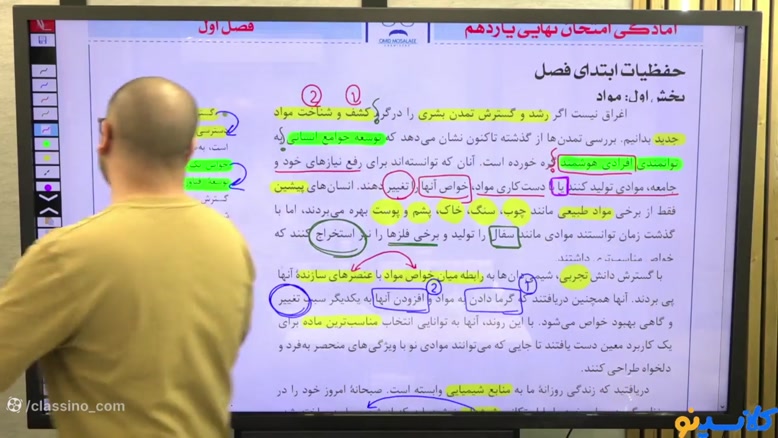 آمادگی امتحان نهایی یازدهم
فصل اول
OMID MOSALAEE
حفظیات ابتدای فصل
بخش اول: مواد
اغراق نیست اگر رشد و گسترش تمدن بشری را در گرو کشف و شناخت مواد
جدید بدانیم. بررسی تمدن‌ها از گذشته تاکنون نشان می‌دهد که توسعه جوامع انسانی به
توانمندی افرادی هوشمند گره خورده است. آنان که توانسته‌اند برای رفع نیازهای خود و
جامعه، موادی تولید کنند یا با دست‌کاری مواد، خواص آنها را تغییر دهند. انسان‌های پیشین
فقط از برخی مواد طبیعی مانند چوب، سنگ، خاک، پشم و پوست بهره می‌بردند، اما با
گذشت زمان توانستند موادی مانند سفال را تولید و برخی فلزها را نیز استخراج کنند که
خواص مناسب‌تری داشتند.
با گسترش دانش تجربی، شیمی‌دان‌ها به رابطه میان خواص مواد با عنصرهای سازندهٔ آنها
پی بردند. آنها همچنین دریافتند که گرما دادن به مواد و افزودن آنها به یکدیگر سبب تغییر
و گاهی بهبود خواص می‌شود. با این روند، آنها به توانایی انتخاب مناسب‌ترین ماده برای
یک کاربرد معین دست یافتند تا جایی که می‌توانند موادی نو با ویژگی‌های منحصر به‌فرد و
دلخواه طراحی کنند.
دریافتید که زندگی روزانهٔ ما به منابع شیمیایی وابسته است. صبحانهٔ امروز خود را در
است، به
گسترش
/classino_com
کلاسینو